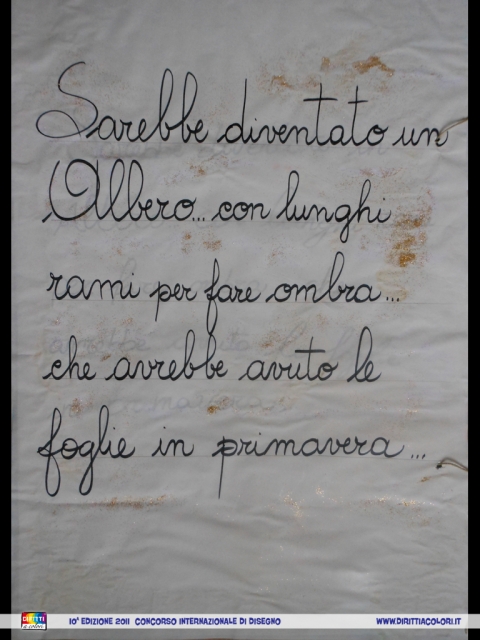 Sarebbe diventato un
Albero... con lunghi
rami per fare ombra...
che avrebbe avuto le
foglie in primavera...
DIRITTI
a colori
10ª EDIZIONE 2011 CONCORSO INTERNAZIONALE DI DISEGNO
WWW.DIRITTIACOLORI.IT